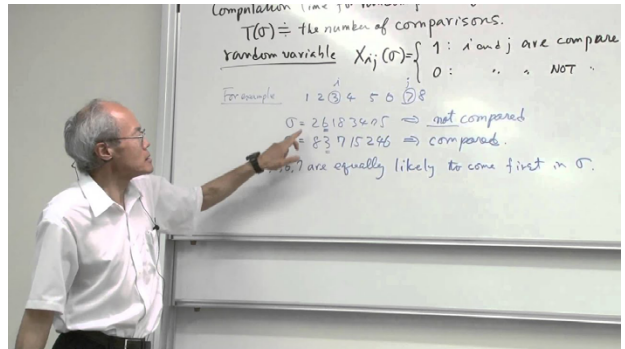 Computation time for
T(σ) ≒ the number of comparisons.
random variable X_ij(σ) = { 1 : i and j are compare
0 : 〃 〃 NOT 〃
i j
For example 1 2 ③ 4 5 6 ⑦ 8
σ = 2 6 1 8 3 4 7 5 ⇒ not compared
= 8 3 7 1 5 2 4 6 ⇒ compared.
6, 7 are equally likely to come first in σ.